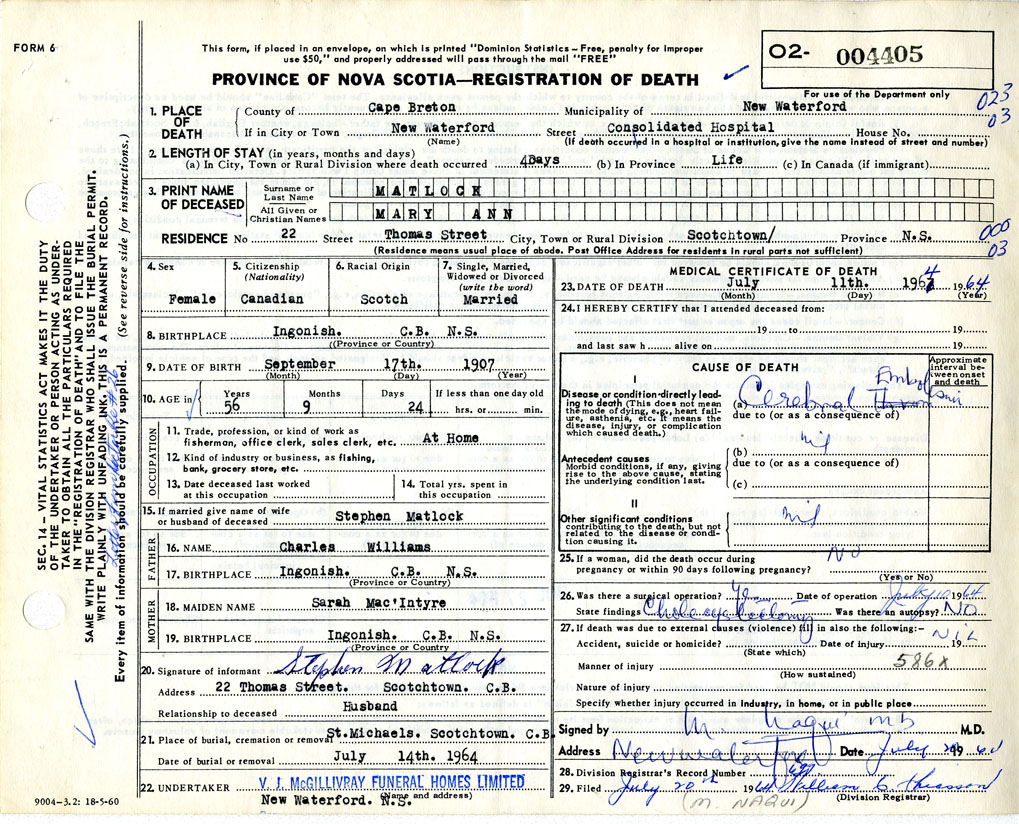 FORM 6
This form, if placed in an envelope, on which is printed "Dominion Statistics—Free, penalty for improper
use $50," and properly addressed will pass through the mail "FREE"
PROVINCE OF NOVA SCOTIA—REGISTRATION OF DEATH
O2- 004405
For use of the Department only
023
03
1. PLACE OF DEATH
County of Cape Breton Municipality of New Waterford
If in City or Town New Waterford Street Consolidated Hospital House No.
(Name) (If death occurred in a hospital or institution, give the name instead of street and number)
2. LENGTH OF STAY (in years, months and days)
(a) In City, Town or Rural Division where death occurred 4Days (b) In Province Life (c) In Canada (if immigrant)
3. PRINT NAME OF DECEASED
Surname or Last Name MATLOCK
All Given or Christian Names MARY ANN
RESIDENCE No 22 Street Thomas Street City, Town or Rural Division Scotchtown/ Province N.S.
(Residence means usual place of abode. Post Office Address for residents in rural parts not sufficient)
000
03
4. Sex Female
5. Citizenship (Nationality) Canadian
6. Racial Origin Scotch
7. Single, Married, Widowed or Divorced (write the word) Married
8. BIRTHPLACE Ingonish. C.B. N.S.
(Province or Country)
9. DATE OF BIRTH September 17th. 1907
(Month) (Day) (Year)
10. AGE in Years 56 Months 9 Days 24 If less than one day old hrs. or min.
OCCUPATION
11. Trade, profession, or kind of work as
fisherman, office clerk, sales clerk, etc. At Home
12. Kind of industry or business, as fishing,
bank, grocery store, etc.
13. Date deceased last worked
at this occupation
14. Total yrs. spent in
this occupation
15. If married give name of wife
or husband of deceased Stephen Matlock
FATHER
16. NAME Charles Williams
17. BIRTHPLACE Ingonish. C.B. N.S.
(Province or Country)
MOTHER
18. MAIDEN NAME Sarah Mac'Intyre
19. BIRTHPLACE Ingonish. C.B. N.S.
(Province or Country)
20. Signature of informant Stephen Matlock
Address 22 Thomas Street. Scotchtown. C.B.
Relationship to deceased Husband
21. Place of burial, cremation or removal St.Michaels. Scotchtown. C.B
Date of burial or removal July 14th. 1964
22. UNDERTAKER V. J. McGILLIVRAY FUNERAL HOMES LIMITED
(Name and address)
New Waterford. N.S.
9004—3.2: 18-5-60
MEDICAL CERTIFICATE OF DEATH
23. DATE OF DEATH July 11th. 1964 1964
(Month) (Day) (Year)
24. I HEREBY CERTIFY that I attended deceased from:
19 to 19
and last saw h alive on 19
CAUSE OF DEATH
Approximate interval between onset and death
I
Disease or condition directly leading to death (This does not mean the mode of dying, e.g., heart failure, asthenia, etc. It means the disease, injury, or complication which caused death.)
(a) Cerebral Embolism
due to (or as a consequence of)
nil
Antecedent causes
Morbid conditions, if any, giving rise to the above cause, stating the underlying condition last.
(b)
due to (or as a consequence of)
(c)
II
Other significant conditions
contributing to the death, but not related to the disease or condition causing it.
nil
25. If a woman, did the death occur during
pregnancy or within 90 days following pregnancy? No
(Yes or No)
26. Was there a surgical operation? Yes Date of operation July 10 1964
State findings Cholecystectomy Was there an autopsy? NO
27. If death was due to external causes (violence) fill in also the following:—
NIL
Accident, suicide or homicide? Date of injury 19
(State which)
Manner of injury 586X
(How sustained)
Nature of injury
Specify whether injury occurred in industry, in home, or in public place
Signed by M. Naqui MD M.D.
Address New Waterford Date July 19 64
28. Division Registrar's Record Number
29. Filed July 20th 1964 William C Chiasson
(M. NAQUI) (Division Registrar)
SEC. 14—VITAL STATISTICS ACT MAKES IT THE DUTY
OF THE UNDERTAKER OR PERSON ACTING AS UNDER-
TAKER TO OBTAIN ALL THE PARTICULARS REQUIRED
IN THE "REGISTRATION OF DEATH" AND TO FILE THE
SAME WITH THE DIVISION REGISTRAR WHO SHALL ISSUE THE BURIAL PERMIT.
WRITE PLAINLY WITH UNFADING INK. THIS IS A PERMANENT RECORD.
Every item of information should be carefully supplied. (See reverse side for instructions.)